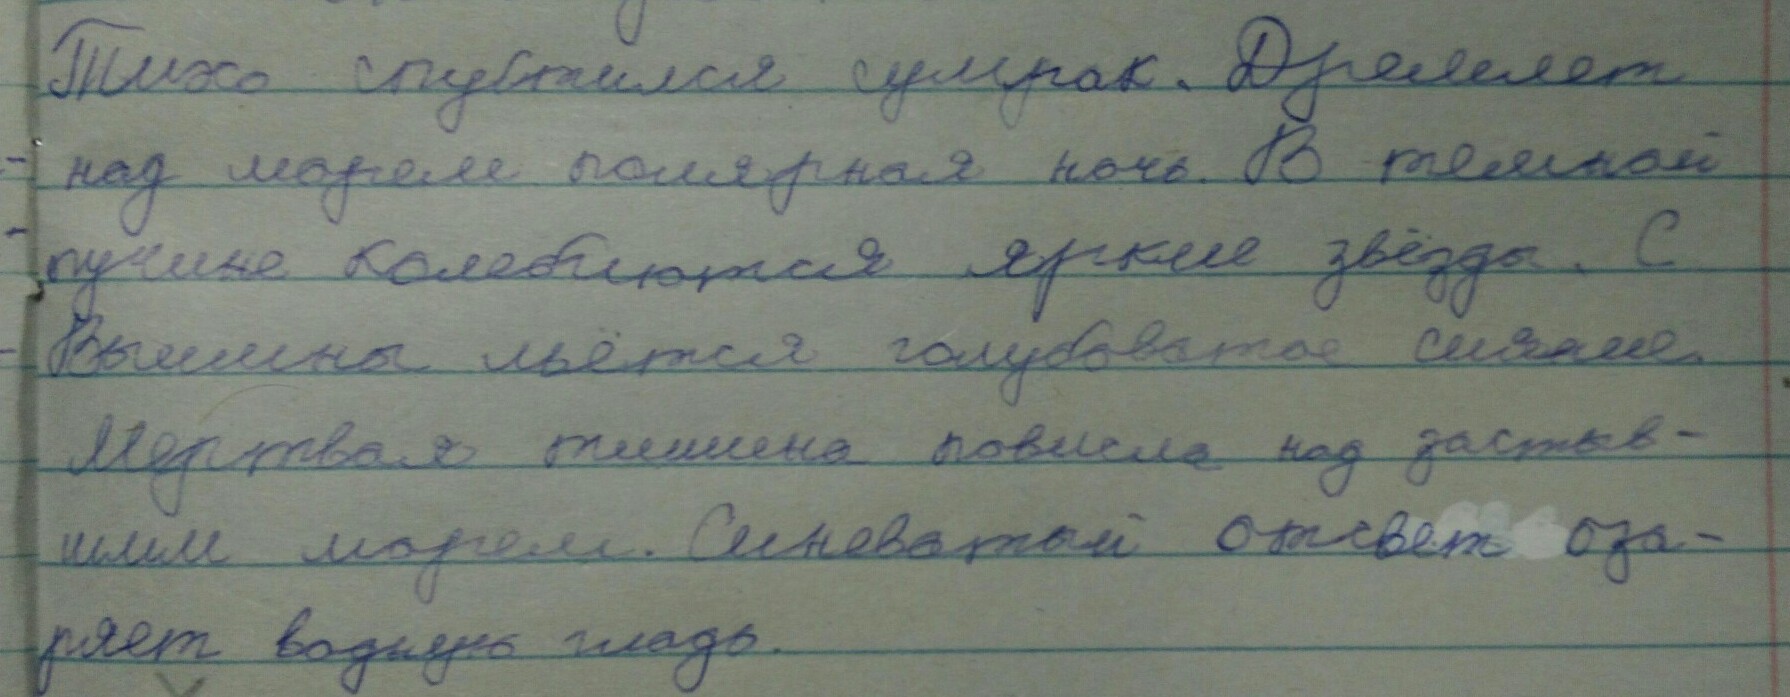 Тихо спустился сумрак. Дремлет
над морем полярная ночь. В темной
пучине колеблются яркие звёзды. С
вышины льётся голубоватое сияние.
Мертвая тишина повисла над застыв-
шим морем. Синеватый отсвет оза-
ряет водную гладь.